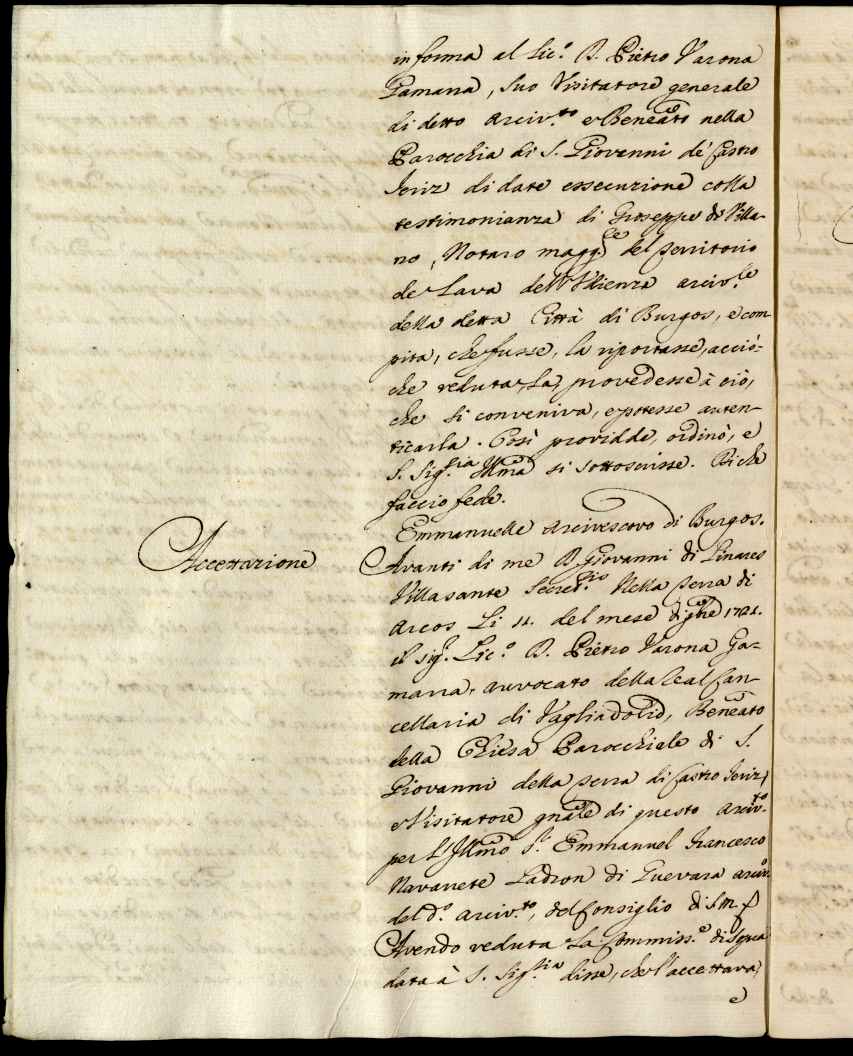 in forma al Lic.º D. Pietro Varona
Gamarra, suo Visitatore generale
di detto Arciv.to e Beneāto nella
Parocchia di S. Giovanni de' Castro
Xeriz di dare essecuzione colla
testimonianza di Giuseppe di Villa-
no, Notaro magg.re del Territorio
de Lara dell'Udienza arciv.le
della detta Città di Burgos, e com
pita, che fusse, la riportasse, acciò-
che veduta la, provedesse à ciò,
che si conveniva, e potesse auten-
ticarla. Così providde, ordinò, e
S. Sig.ria Illma si sottoscrisse. Di che
faccio fede.
Emmanuelle Arcivescovo di Burgos.
Accettazione
Avanti di me D. Giovanni di Linares
Villasante Secret.rio Nella Terra di
Arcos Li 14. del mese di 9bre 1721.
il sig.r Lic.º D. Pietro Varona Ga-
marra, avvocato della Real Can-
cellaria di Vagliadolid, Beneāto
della Chiesa Parocchiale di S.
Giovanni della Terra di Castro Xeriz,
e Visitatore gnāle di questo Arciv.to
per L'Illmō S.r Emmanuel Francesco
Navarrete Ladron di Guevara arciv.º
del d.º arciv.to, del Consiglio di S. M. &
Avendo veduta La Commiss.e di sopra
data à S. Sig.ria disse, che l'accettava,
e